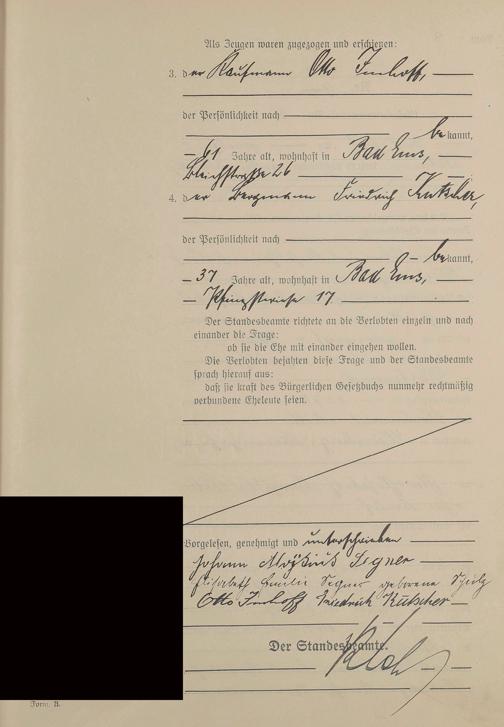 Als Zeugen waren zugezogen und erschienen:
3. der Kaufmann Otto Imhoff,
der Persönlichkeit nach
bekannt,
61 Jahre alt, wohnhaft in Bad Ems,
Bleichstraße 26
4. der Bergmann Friedrich Kutscher,
der Persönlichkeit nach
bekannt,
37 Jahre alt, wohnhaft in Bad Ems,
17
Der Standesbeamte richtete an die Verlobten einzeln und nach
einander die Frage:
ob sie die Ehe mit einander eingehen wollen.
Die Verlobten bejahten diese Frage und der Standesbeamte
sprach hierauf aus:
daß sie kraft des Bürgerlichen Gesetzbuchs nunmehr rechtmäßig
verbundene Eheleute seien.
Vorgelesen, genehmigt und unterschrieben
Johann Aloysius Segner
Elisabeth Emilie Segner geborene
Otto Imhoff Friedrich Kutscher
Der Standesbeamte.
Form. B.